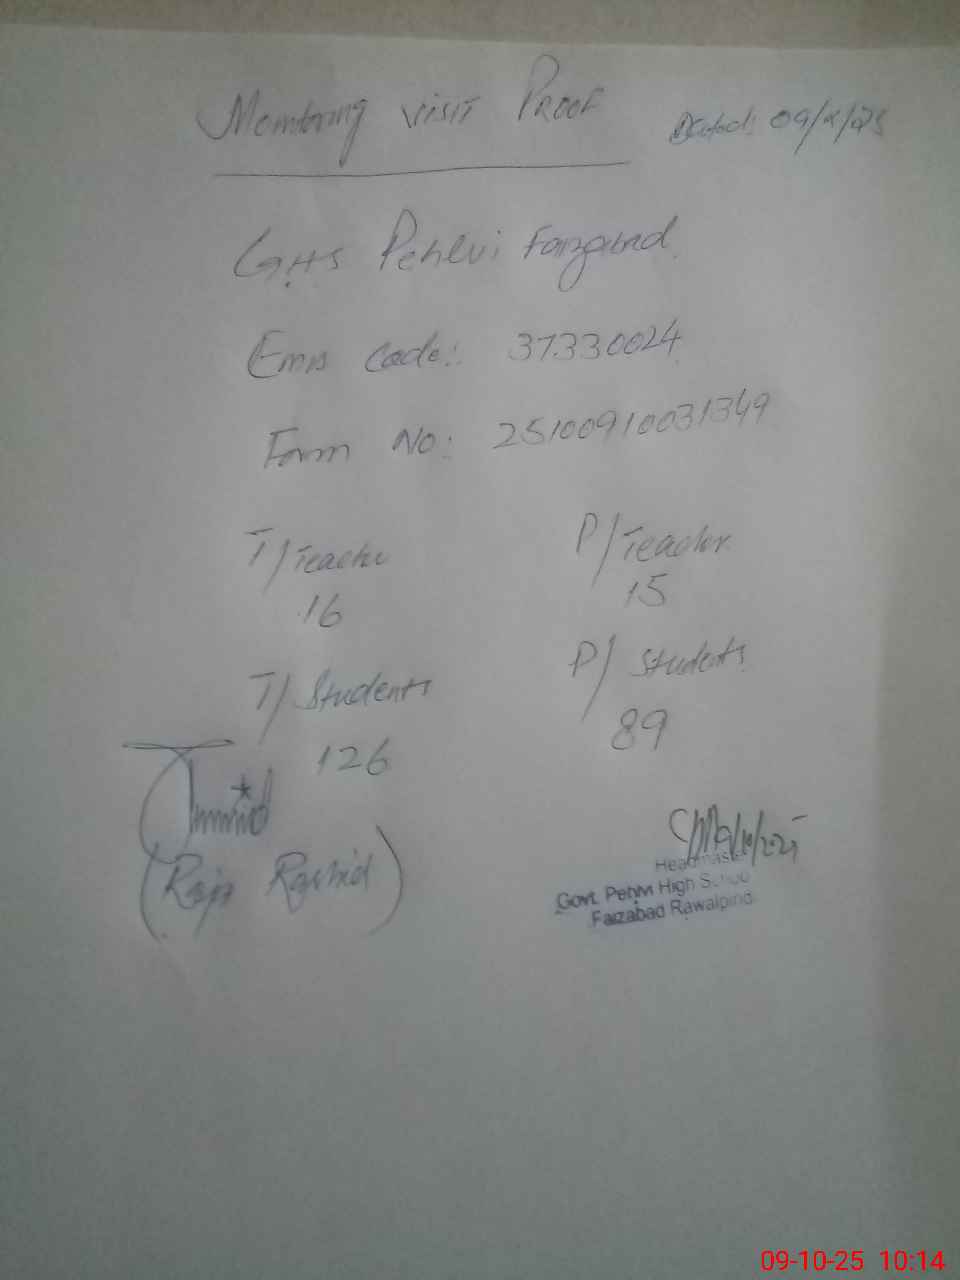 Monitoring VISIT PROOF
Dated: 09/X/25
GHS Pehlvi Faizabad.
Emis Code: 37330024
Form No: 25100910031349
T/Teacher P/Teacher
16 15
T/Students P/Students
126 89
(Raja Rashid)
Headmaster
Govt. Pehlvi High School
Faizabad Rawalpindi
09-10-25 10:14